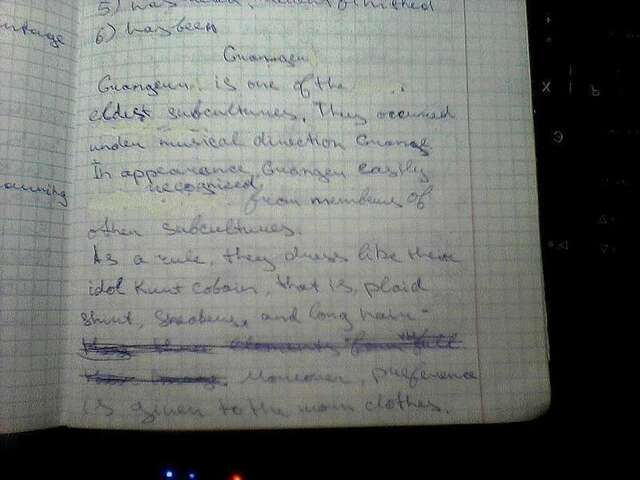 6) has been
Grunger
Grunger is one of the
eldest subcultures. They occurred
under musical direction Grunge
In appearance Grunger easily
recognized from members of
other subcultures.
As a rule, they dress like their
idol Kurt Cobain, that is, plaid
shirt, sneakers, and long hair.
Moreover, preference
is given to the worn clothes.
Х
Ъ
Э